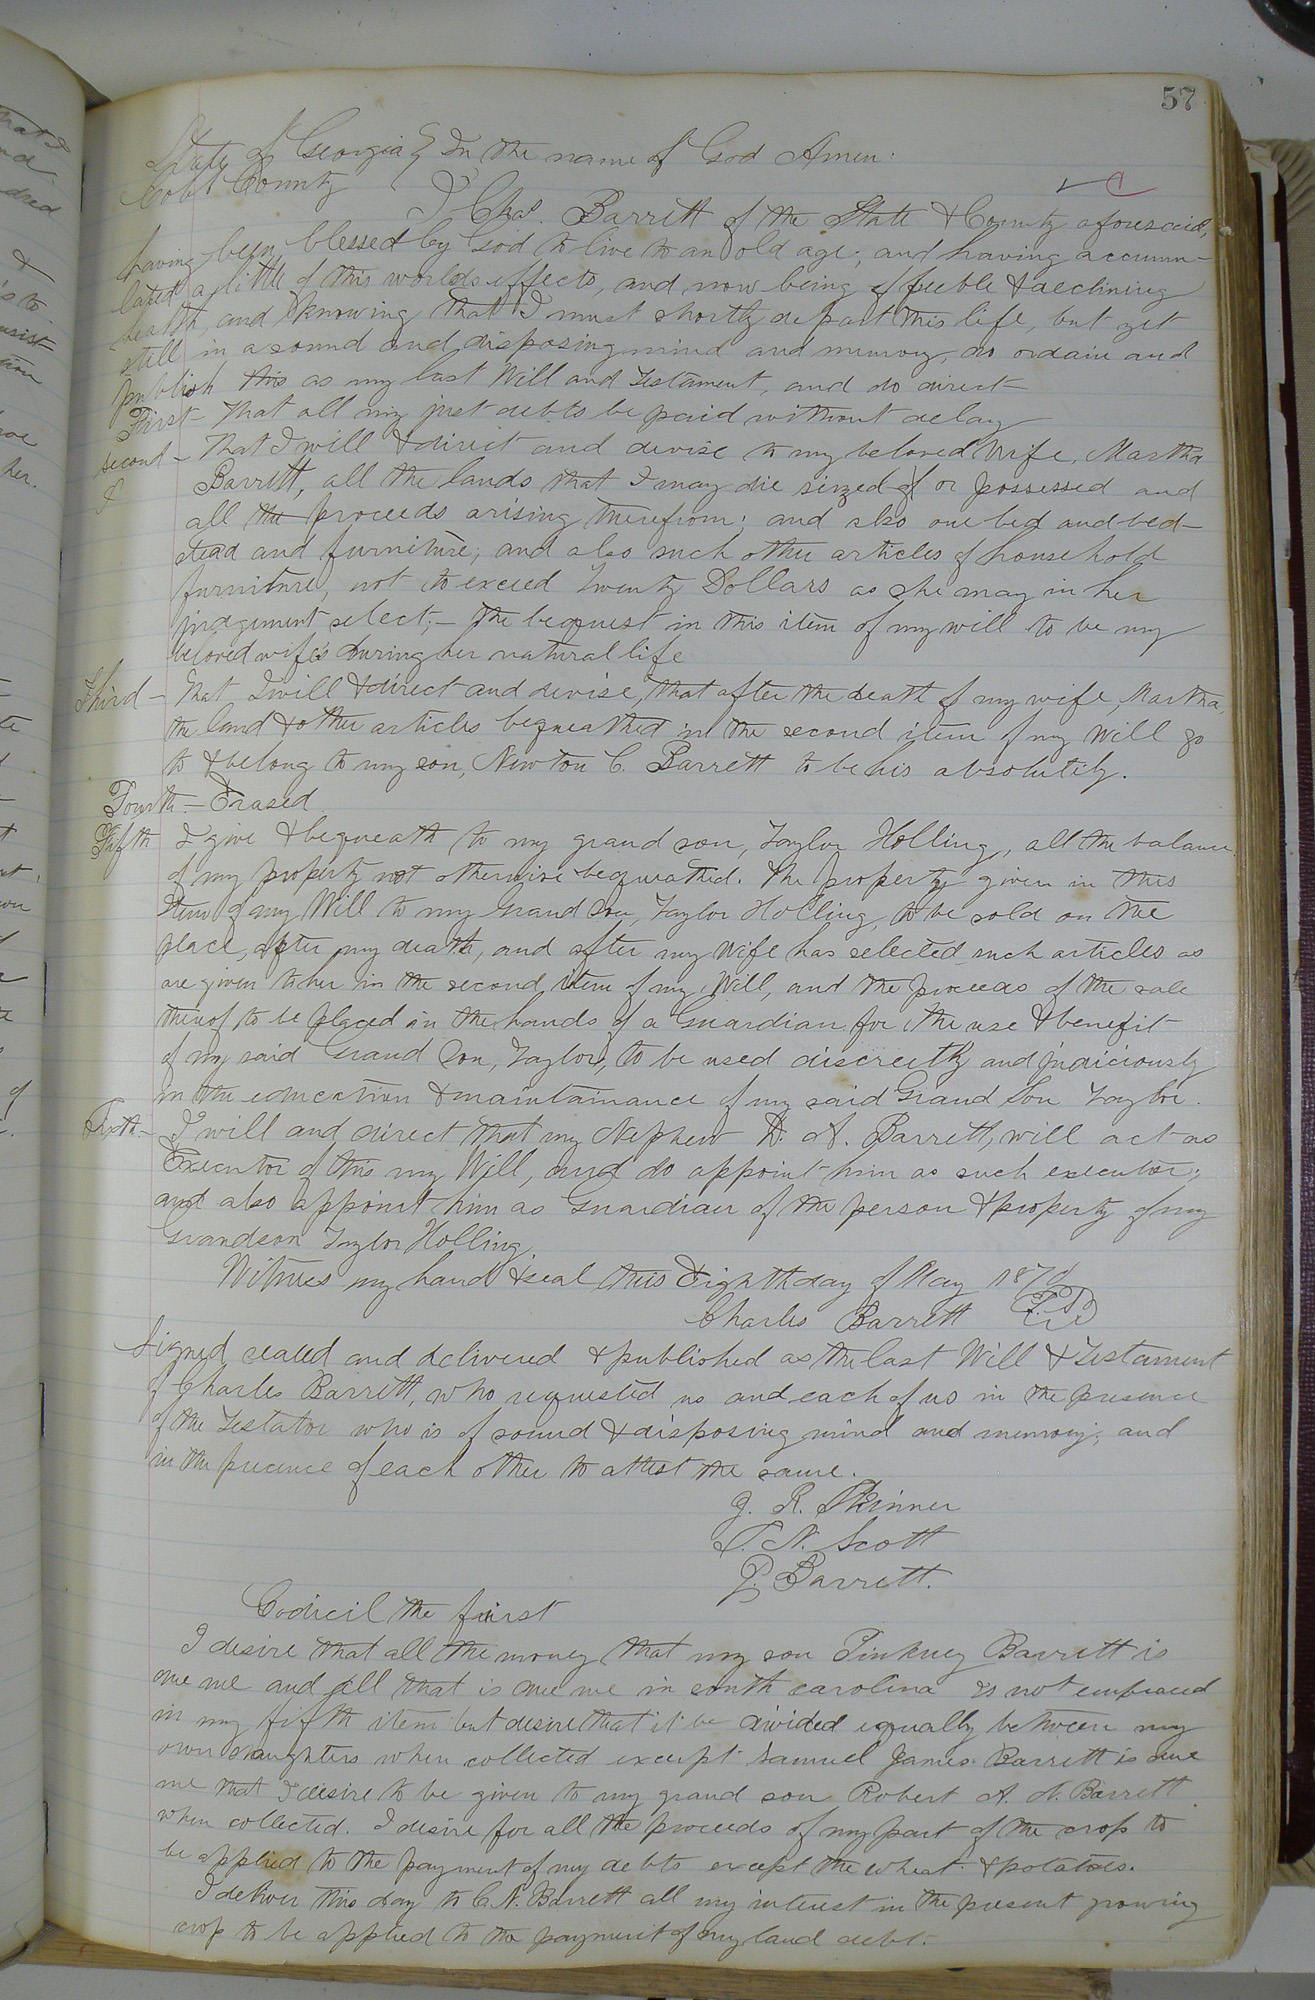 57
State of Georgia } In the name of God Amen.
Cobb County
I Chas. Barrett of the State & County aforesaid,
having been blessed by God to live to an old age; and having accumu-
lated a little of this worlds effects, and now being of feeble & declining
health, and knowing that I must shortly depart this life, but yet
still in a sound and disposing mind and memory, do ordain and
publish this as my last Will and Testament, and do direct
First- That all my just debts be paid without delay
second - That I will & direct and devise to my beloved Wife, Martha
Barrett, all the lands that I may die seized of or possessed and
all the proceeds arising therefrom; and also one bed and bed-
stead and furniture; and also such other articles of household
furniture, not to exceed Twenty Dollars as she may in her
judgement select;- the bequest in this item of my will to be my
beloved wife's during her natural life
Third - That I will & direct and devise, that after the death of my wife, Martha,
the land & other articles bequeathed in the second item of my Will go
to & belong to my son, Newton C. Barrett to be his absolutely.
Fourth - Erased
Fifth I give & bequeath to my grand son, Taylor Holling, all the balance
of my property not otherwise bequeathed. The property given in this
Item of my Will to my Grand Son, Taylor Holling, to be sold on the
place, after my death, and after my Wife has selected such articles as
are given to her in the second item of my Will, and the proceeds of the sale
thereof to be placed in the hands of a Guardian for the use & benefit
of my said Grand Son, Taylor, to be used discreetly and judiciously
in the education & maintainance of my said Grand Son Taylor.
Sixth - I will and direct that my Nephew W. A. Barrett, will act as
Executor of this my Will, and do appoint him as such executor;
and also appoint him as Guardian of the person & property of my
Grandson Taylor Holling.
Witness my hand & seal this Eighth day of May 187
Charles Barrett
Signed sealed and delivered & published as the last Will & Testament
of Charles Barrett, who requested us and each of us in the presence
of the Testator who is of sound & disposing mind and memory, and
in the precence of each other to attest the same.
J. R. Skinner
T. N. Scott
P. Barrett.
Codicil the first
I desire that all the money that my son Pinkney Barrett is
due me and all that is due me in south carolina is not embraced
in my fifth item but desire that it be divided equally between my
own daughters when collected except Samuel James Barrett is due
me that I desire to be given to my grand son Robert A. N. Barrett
when collected. I desire for all the proceeds of my part of the crop to
be applied to the payment of my debts except the wheat & potatoes.
I deliver this day to C. N. Barrett all my interest in the present growing
crop to be applied to the payment of my land debt.